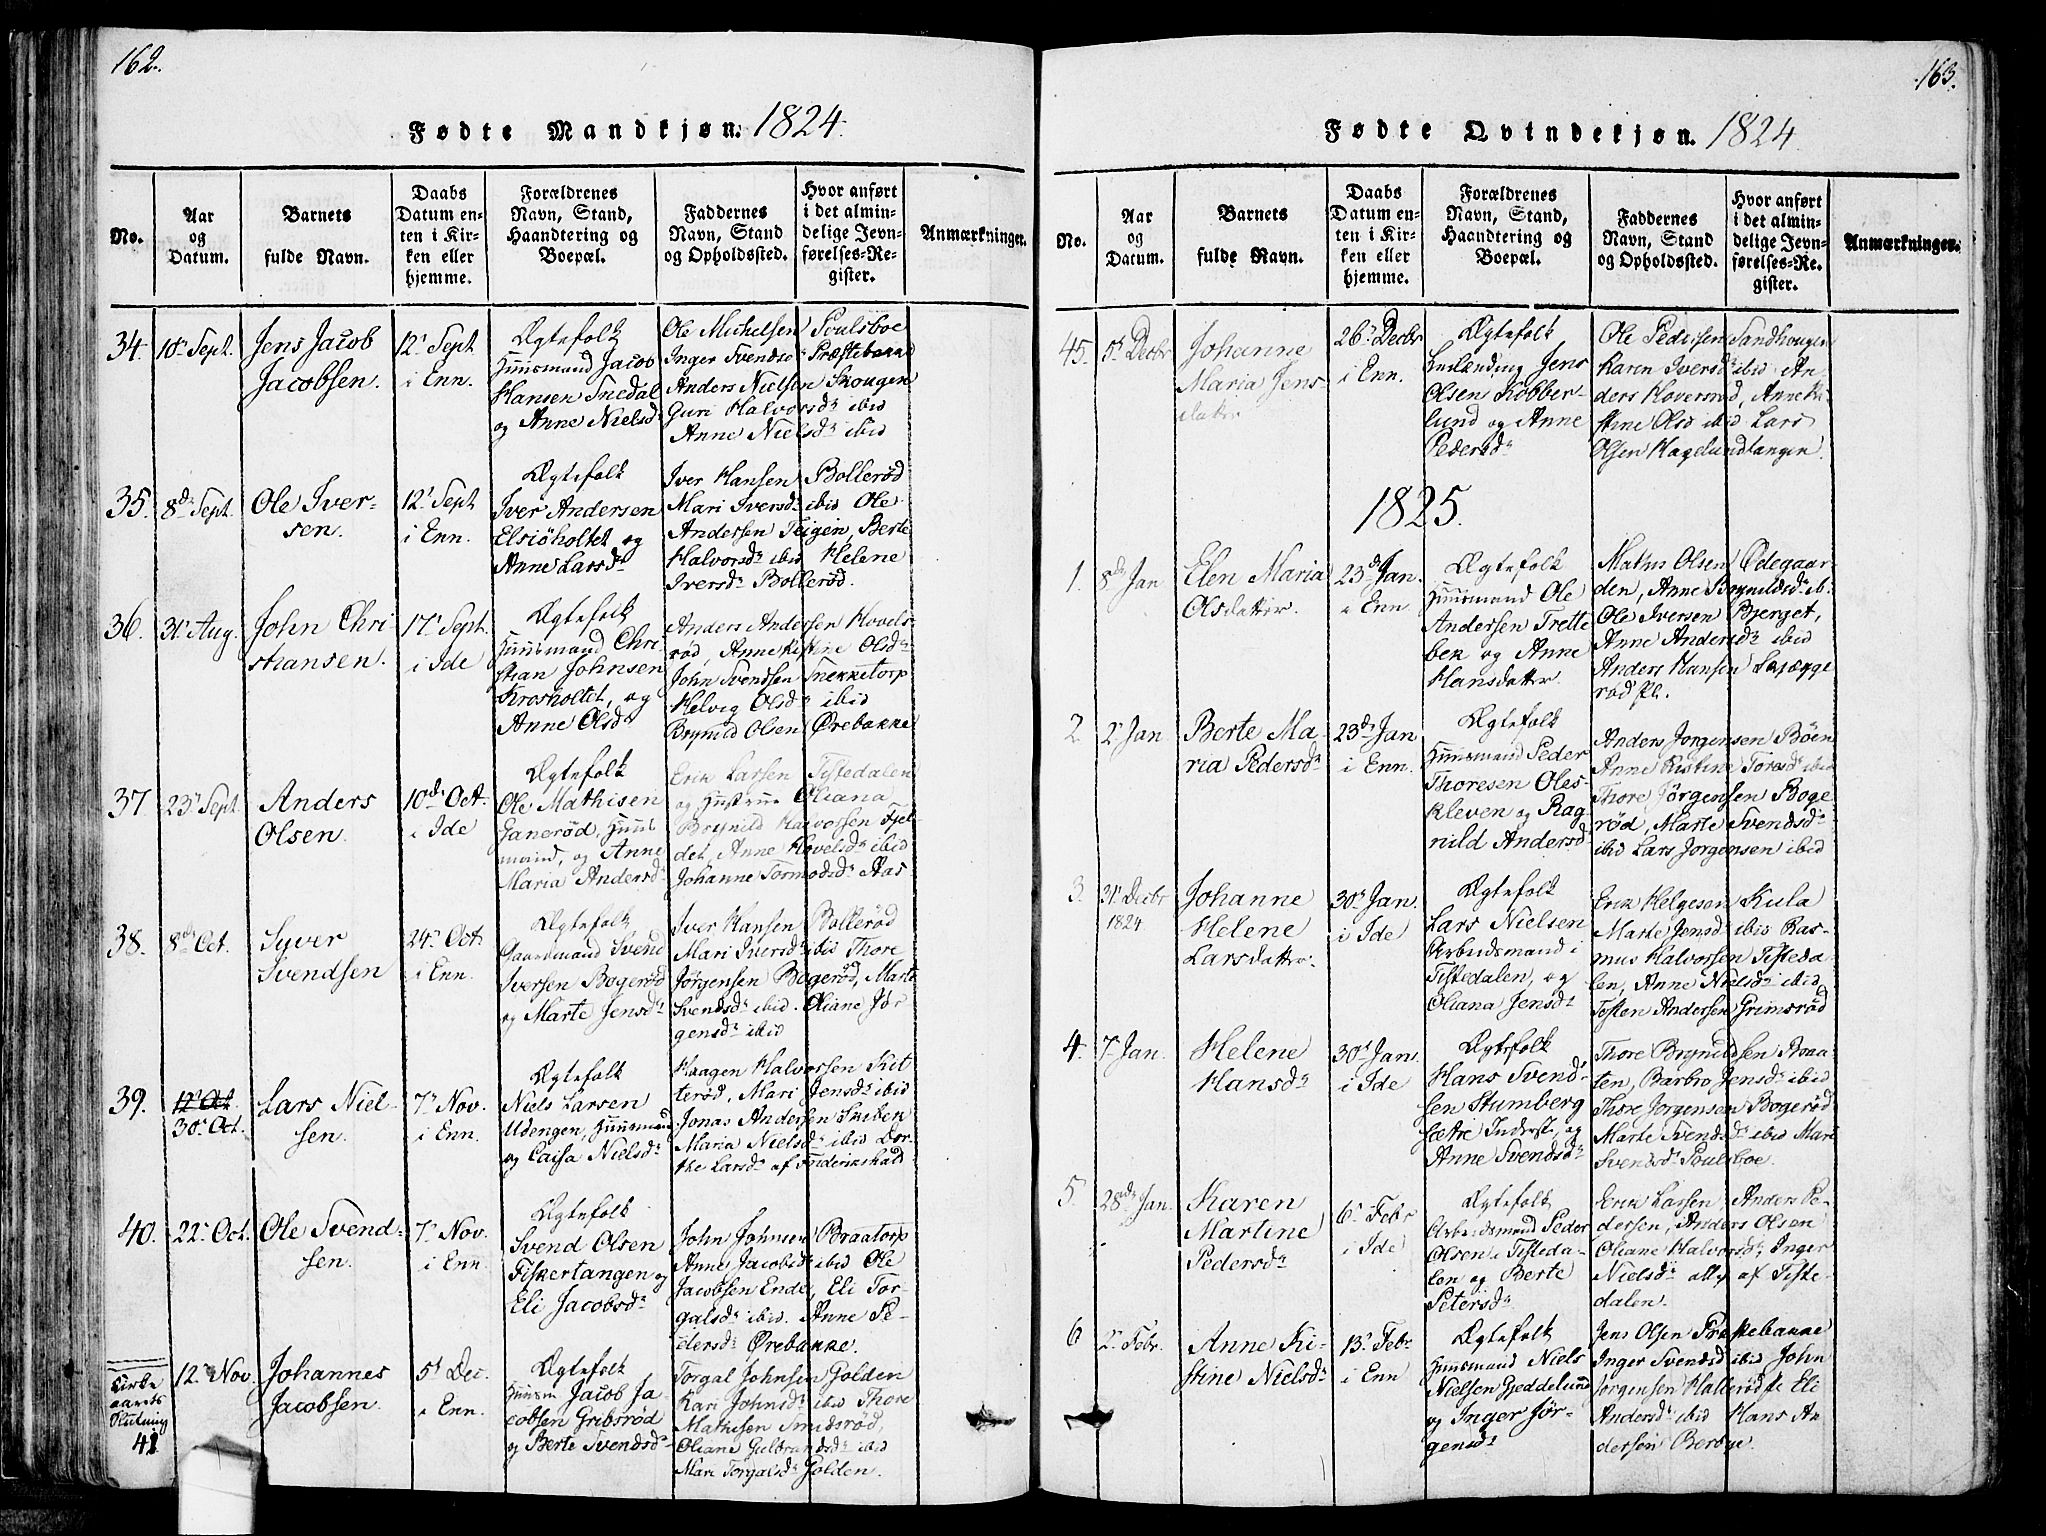 162.
Fødte Mandkjøn. 1824.
No.
Aar
og
Datum.
Barnets
fulde Navn.
Daabs
Datum en-
ten i Kir-
ken eller
hjemme.
Forældrenes
Navn, Stand,
Haandtering og
Boepæl.
Faddernes
Navn, Stand
og Opholdssted.
Hvor anført
i det almin-
delige Jevn-
førelses-Re-
gister.
Anmærkninger.
34.
10. Sept.
Jens Jacob
Jacobsen.
12. Sept
i Enn.
Ægtefolk
Huusmand Jacob
Hansen
og Anne Nielsd
Ole Michelsen Poulsboe
Inger Svendsd Præstebakke
Anders Nielsen Skougen
Guri Halvorsdr ibid
Anne Nielsdr ibid
35.
8de Sept.
Ole Iver-
sen.
12. Sept
i Enn.
Ægtefolk
Iver Andersen
Elsiöholtet og
Anne Larsdr
Iver Hansen Bollerød
Mari Iversdr ibid Ole
Andersen Teigen, Berte
Halvorsdr ibid Helene
Iversdr Bollerød.
36.
31. Aug.
John Chri
stiansen.
17. Sept.
i Ide
Ægtefolk
Huusmand Chri-
stian Johnsen
Krosholtet, og
Anne Olsdr
Anders Andersen Hovels
rød, Anne Kistine Olsdr
John Svendsen Snekketorp
Helvig Olsdr ibid
Brynild Olsen Ørebakke
37.
23. Sept.
Anders
Olsen.
10de Oct.
i Ide
Ægtefolk
Ole Mathisen
Ganerød, Huus
mand, og Anne
Maria Andersdr
Erik Larsen Tistedalen
og Hustrue Oliana
Brynild Halvorsen Fjel
det, Anne Hovelsdr ibid
Johanne Tormodsdr Aas
38.
8de Oct.
Syver
Svendsen
24. Oct.
i Enn.
Ægtefolk
Gaardmand Svend
Iversen Bogerød
og Marte Jensdr
Iver Hansen Bollerød
Mari Iversdr ibid Thore
Jørgensen Bogerød, Marte
Svendsdr ibid. Oliane Jør
gensdr ibid
39.
12. Oct.
30. Oct.
Lars Niel-
sen.
7. Nov.
i Enn.
Ægtefolk
Niels Larsen
Udengen, Huusmand
og Caisa Nielsdr
Haagen Halvorsen Kit
terød, Mari Jensdr ibid
Jonas Andersen
Maria Nielsdr ibid Dor-
the Larsdr af Friderikshald
40.
22. Oct.
Ole Svend-
sen.
7. Nov.
i Enn.
Ægtefolk
Svend Olsen
Fiskertangen og
Eli Jacobsdr
John Johnsen Braatorp
Anne Jacobsdr ibid Ole
Jacobsen Ende, Eli Tor-
galsdr ibid. Anne Pe-
dersdr Ørebakke.
Kirke
aarets
Slutning
41
12. Nov.
Johannes
Jacobsen.
5. Dec.
i Enn.
Ægtefolk
Huusm Jacob Ja-
cobsen Gribsrød
og Berte Svendsdr
Torgal Johnsen Golden
Kari Johnsdr ibid Thore
Mathisen Smidsrød,
Oliane Gulbrandsdr ibid
Mari Torgalsdr Golden.
163.
Fødte Qvindekjøn. 1824.
No.
Aar
og
Datum.
Barnets
fulde Navn.
Daabs
Datum en-
ten i Kir-
ken eller
hjemme.
Forældrenes
Navn, Stand,
Haandtering og
Boepæl.
Faddernes
Navn, Stand
og Opholdssted.
Hvor anført
i det almin-
delige Jevn-
førelses-Re-
gister.
Anmærkninger.
45.
5. Decbr
Johanne
Maria Jens
datter
26. Decbr
i Enn.
Ægtefolk
Jens
Olsen Kobber-
lund og Anne
Pedersdr
Ole Pedersen Sandhougen
Karen Iversdr ibid An-
ders Hoversrød, Anne Ki
stine Olsd ibid Lars
Olsen Hagelundtangen.
1825.
1.
8de Jan
Elen Maria
Olsdatter.
23de Jan.
i Enn
Ægtefolk
Huusmand Ole
Andersen Trette
bek og Anne
Hansdatter
Mathis Olsen Ødegaar
den, Anne Brynildsdr ib.
Ole Iversen Bjerget,
Anne Andersdr ibid
Anders Hansen
rød Pl.
2
2. Jan
Berte Ma-
ria Pedersdr
23de Jan
i Enn.
Ægtefolk
Huusmand Peder
Thoresen Oles-
kleven og Rag
nild Andersd
Anders Jorgensen Böen
Anne Kistine Toresdr ibid
Thore Jørgensen Boge
rød, Marte Svendsdr
ibid Lars Jorgensen ibid
3.
31. Decbr
1824
Johanne
Helene
Larsdatter.
30. Jan.
i Ide
Ægtefolk
Lars Nielsen
Arbeidsmand i
Tistedalen, og
Oliana Jensdr
Erik Helgesen Kula
Marte Jensdr ibid Ras-
mus Halvorsen Tisteda-
len, Anne Nielsdr ibid,
Tosten Andersen Grimsrød
4.
7. Jan.
Helene
Hansdr
30. Jan.
i Ide
Ægtefolk
Hans Svend-
sen Stumberg
sætre Inderst, og
Anne Svendsdr
Thore Brynildsen Braa-
ten, Barbro Jensdr ibid
Thore Jorgensen Bogerød
Marte Svendsdr ibid Mari
Svendsdr Poulsboe.
5.
28de Jan.
Karen
Martine
Pedersdr
6. Febr
i Ide
Ægtefolk
Arbeidsmand Peder
Olsen i Tisteda-
len og Berte
Petersdr
Erik Larsen, Anders Pe-
dersen, Anders Olsen
Oliane Halvorsdr, Inger
Nielsdr alle af Tiste-
dalen.
6
2. Febr.
Anne Ki-
stine Nielsdr
13. Febr
i Enn
Ægtefolk
Huusmand Niels
Nielsen Geddelund
og Inger Jør-
gensdr
Jens Olsen Prestebakke
Inger Svendsd ibid John
Jorgensen Hallerød Eli
Andersdr ibid Hans An
dersen Berbye.